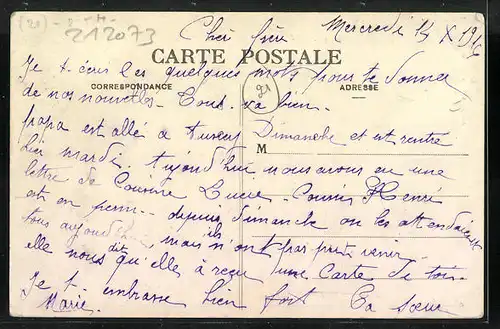 (21)
212073
Cher frère Mercredi 14 X 1916
CARTE POSTALE
CORRESPONDANCE
ADRESSE
21
M
Je t. écris les quelques mots pour te donner
de nos nouvelles. Tout va bien.
papa est allé a Dimanche et est rentré
hier mardi. Aujourd'hui nous avons eu une
lettre de Cousine Lucie. Cousin Henri
est en perm.. depuis dimanche on les attendait
tous aujourd'hui mais ils n'ont pas pu venir.
elle nous dit qu'elle à reçu une Carte de toi.
Je t. embrasse bien fort Ta sœur
Marie.